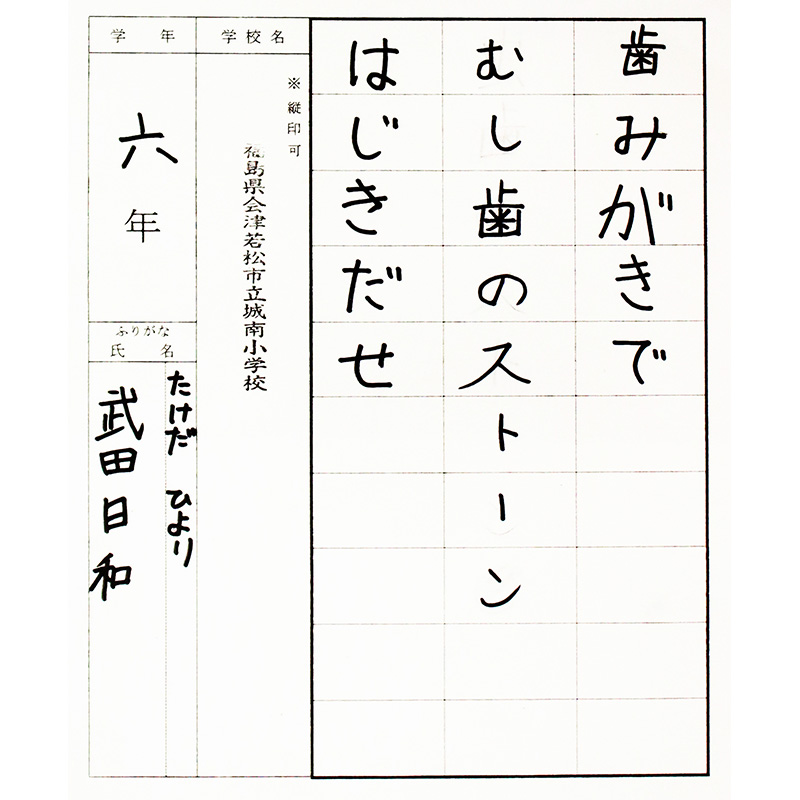 歯みがきで
むし歯のストーン
はじきだせ
学校名
※縦印可
福島県会津若松市立城南小学校
学年
六年
ふりがな
氏名
たけだ ひより
武田日和